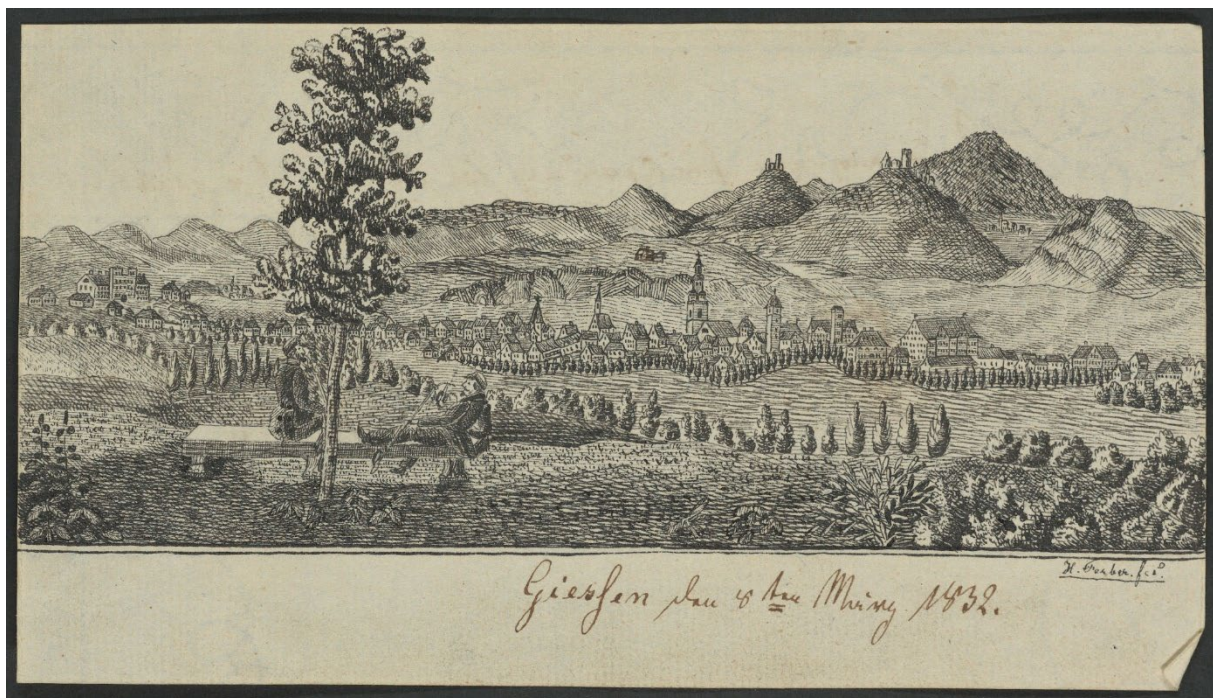 H. Gerber. fec.
Giessen den 8ten März 1832.